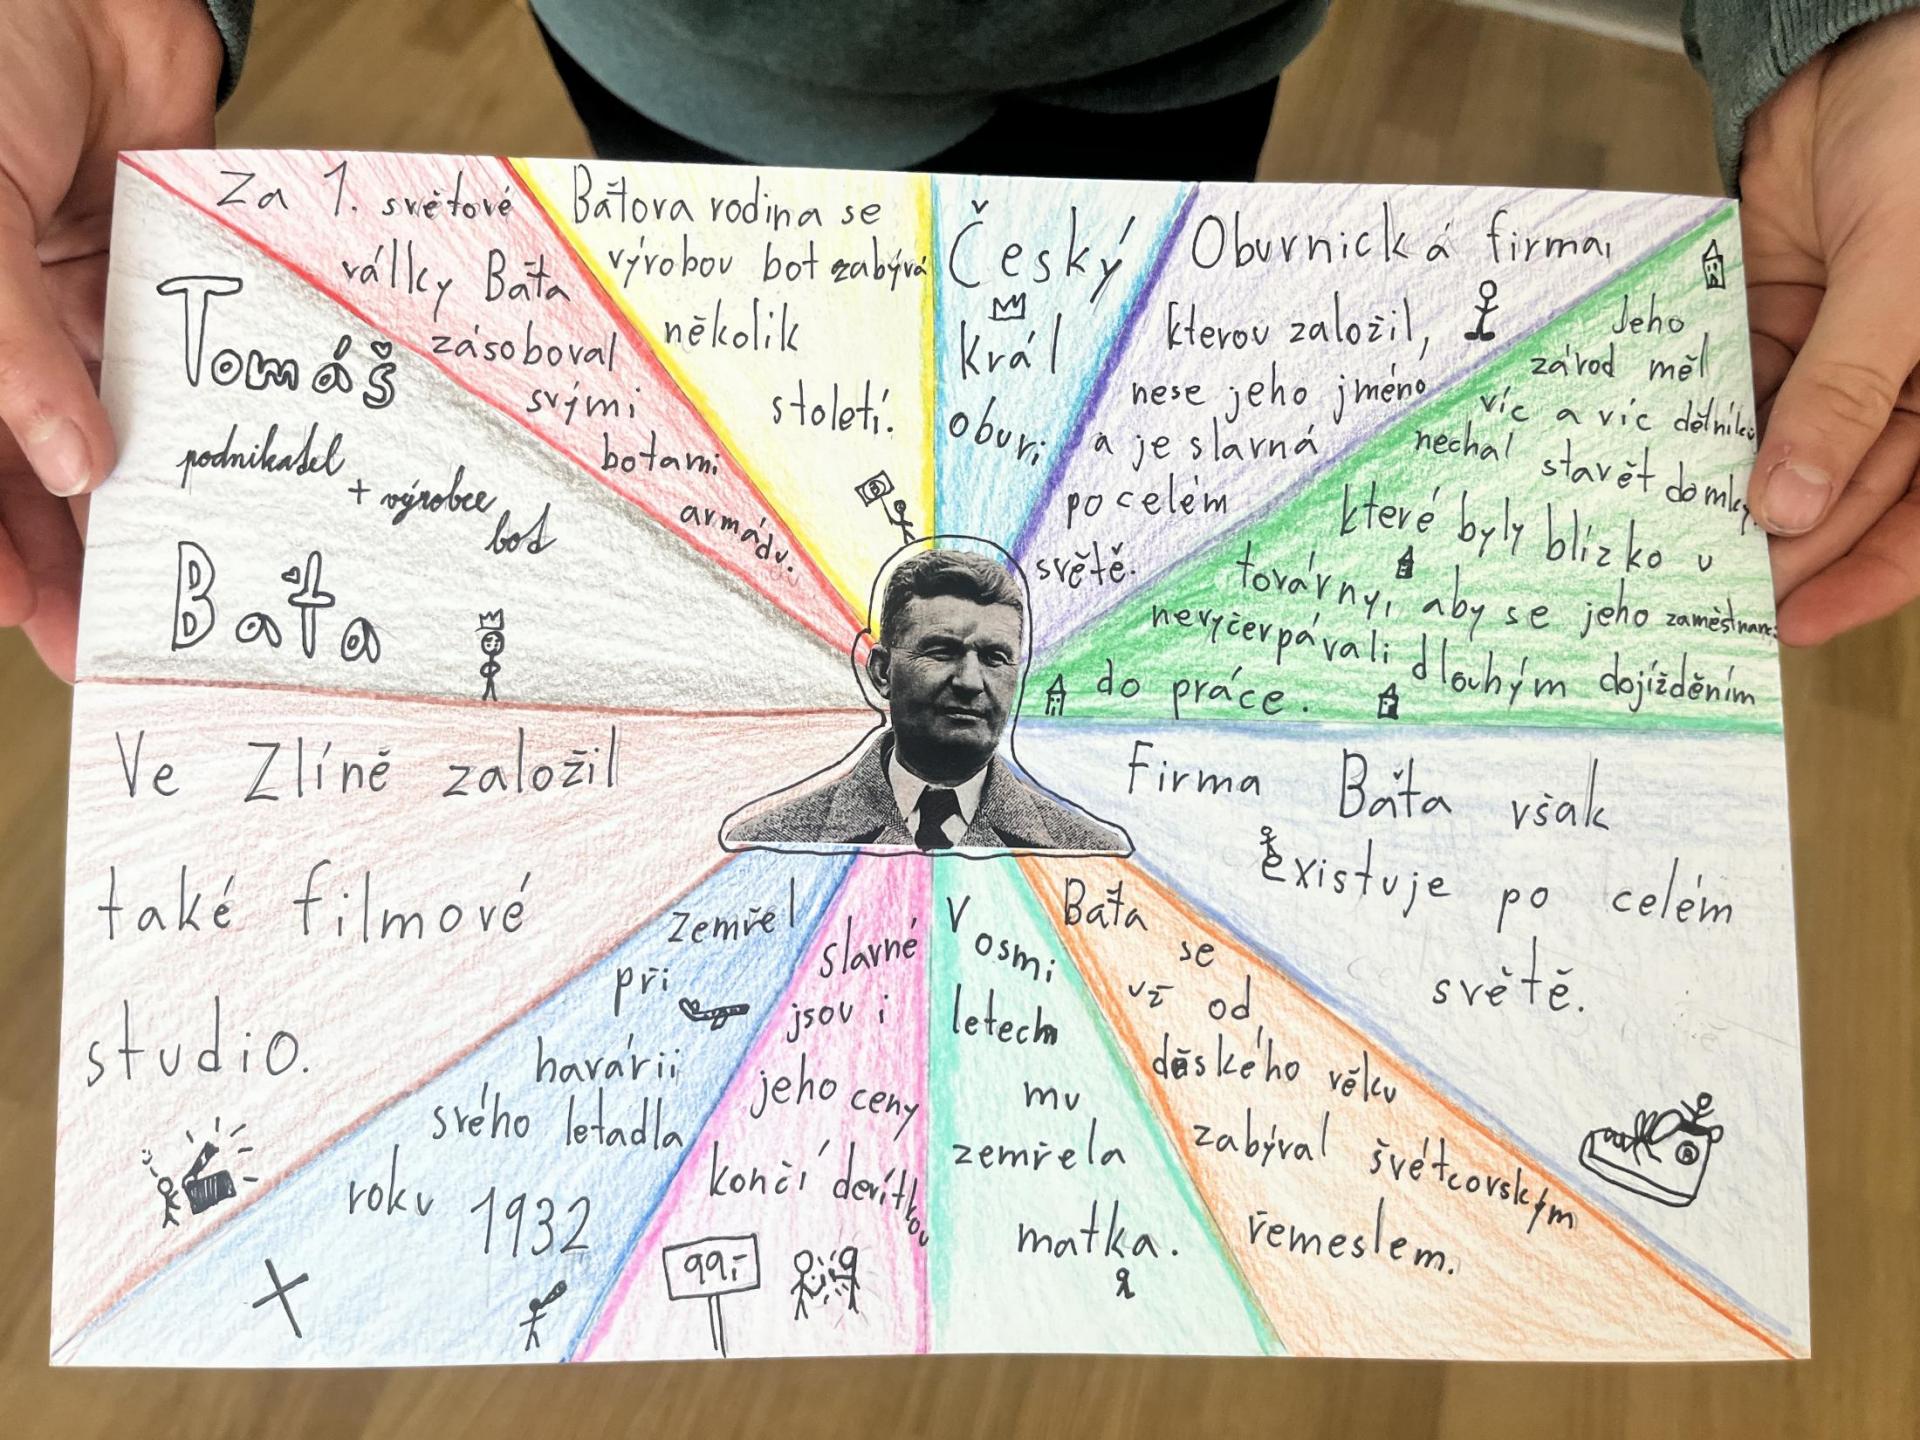 Tomáš
podnikatel
+ výrobce
bot
Baťa
Za 1. světové
války Baťa
zásoboval
svými
botami
armádu.
Báťova rodina se
výrobou bot zabývá
několik
století.
Český
král
obuvi
Obuvnická firma,
kterou založil,
nese jeho jméno
a je slavná
po celém
světě.
Jeho
závod měl
víc a víc dělníků
nechal stavět domky,
které byly blízko u
továrny, aby se jeho zaměstnanci
nevyčerpávali dlouhým dojížděním
do práce.
Firma Baťa však
existuje po celém
světě.
B
Baťa
se
už od
děského věku
zabýval švétcovským
řemeslem.
V osmi
letech
mu
zemřela
matka.
slavné
jsou i
jeho ceny
končí devítkou
99,-
Zemřel
při
havárii
svého letadla
roku 1932
Ve Zlíně založil
také filmové
studio.